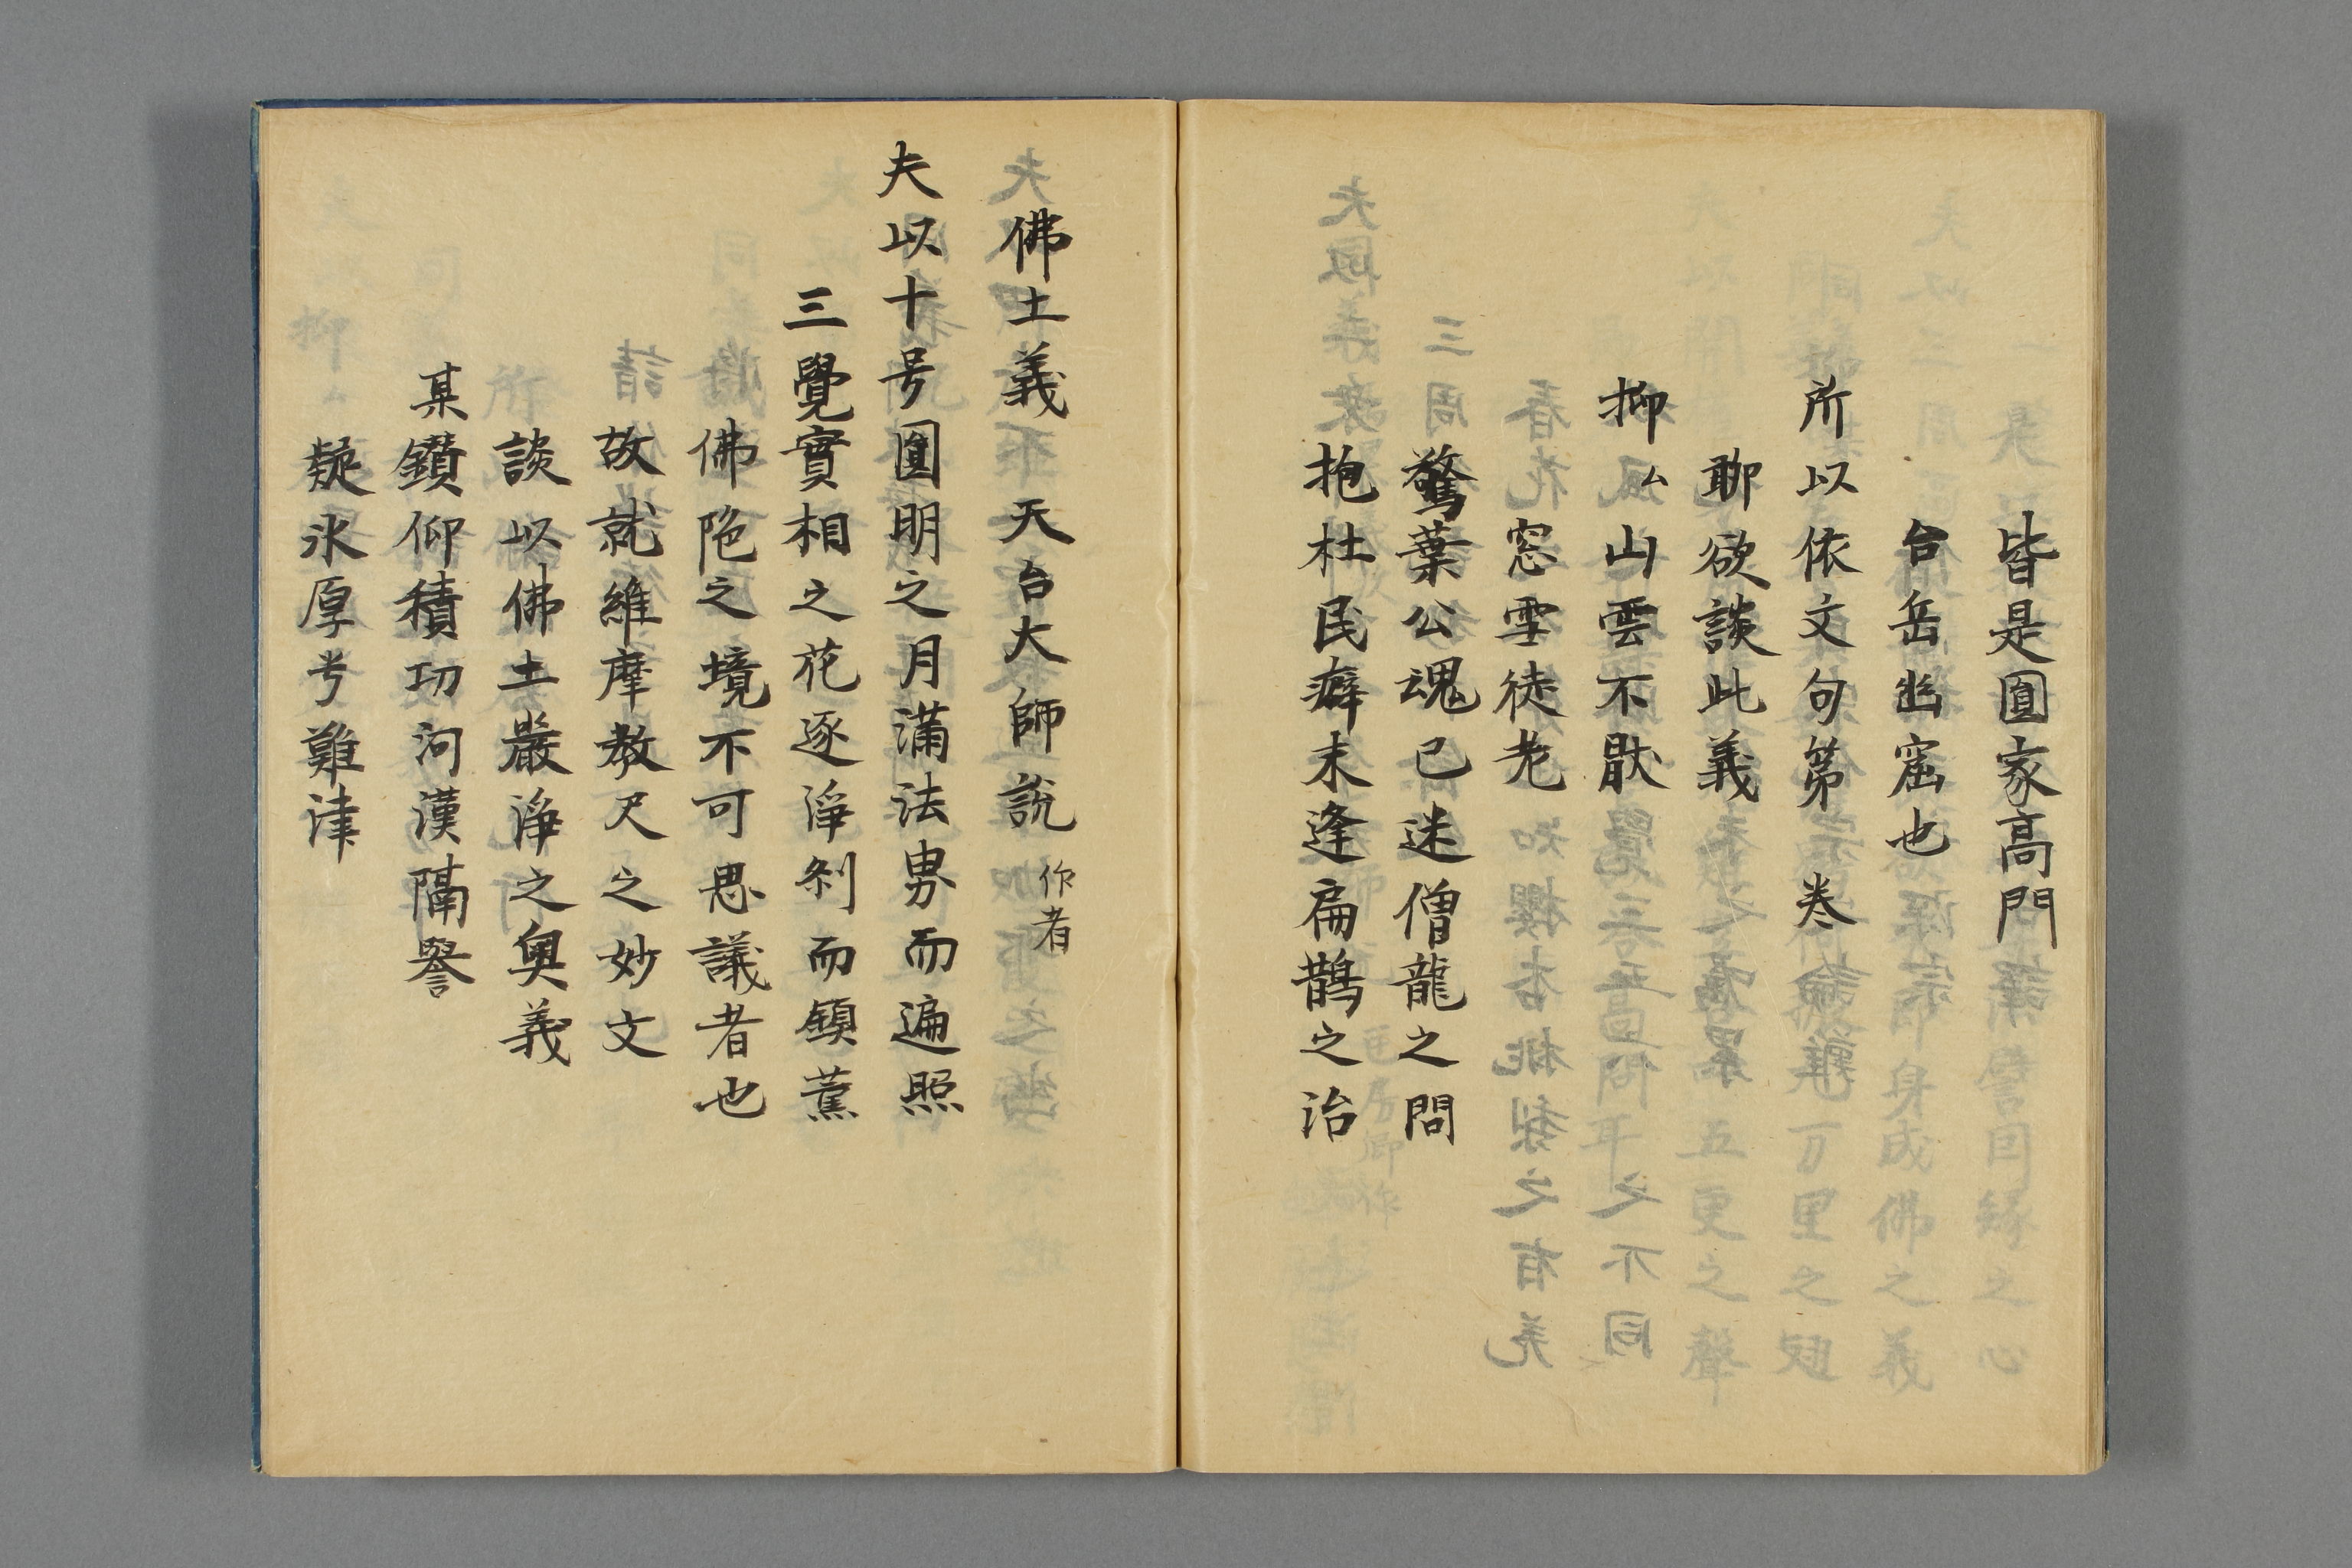 皆是圓家高門
台岳幽窟也
所以依文句第　卷
聊欲談此義
抑ム山雲不猒
窓雪徒老
驚葉公魂已迷僧龍之問
抱杜民癖未逢扁鵲之治
佛土義　天台大師説作者
夫以十号圓明之月滿法男而遍照
三覺實相之花逐淨刹而鎮薫
佛陁之境不可思議者也
故就維摩教尺之妙文
談以佛土嚴淨之奥義
某鑚仰積功河漢隔譽
疑氷厚兮難津